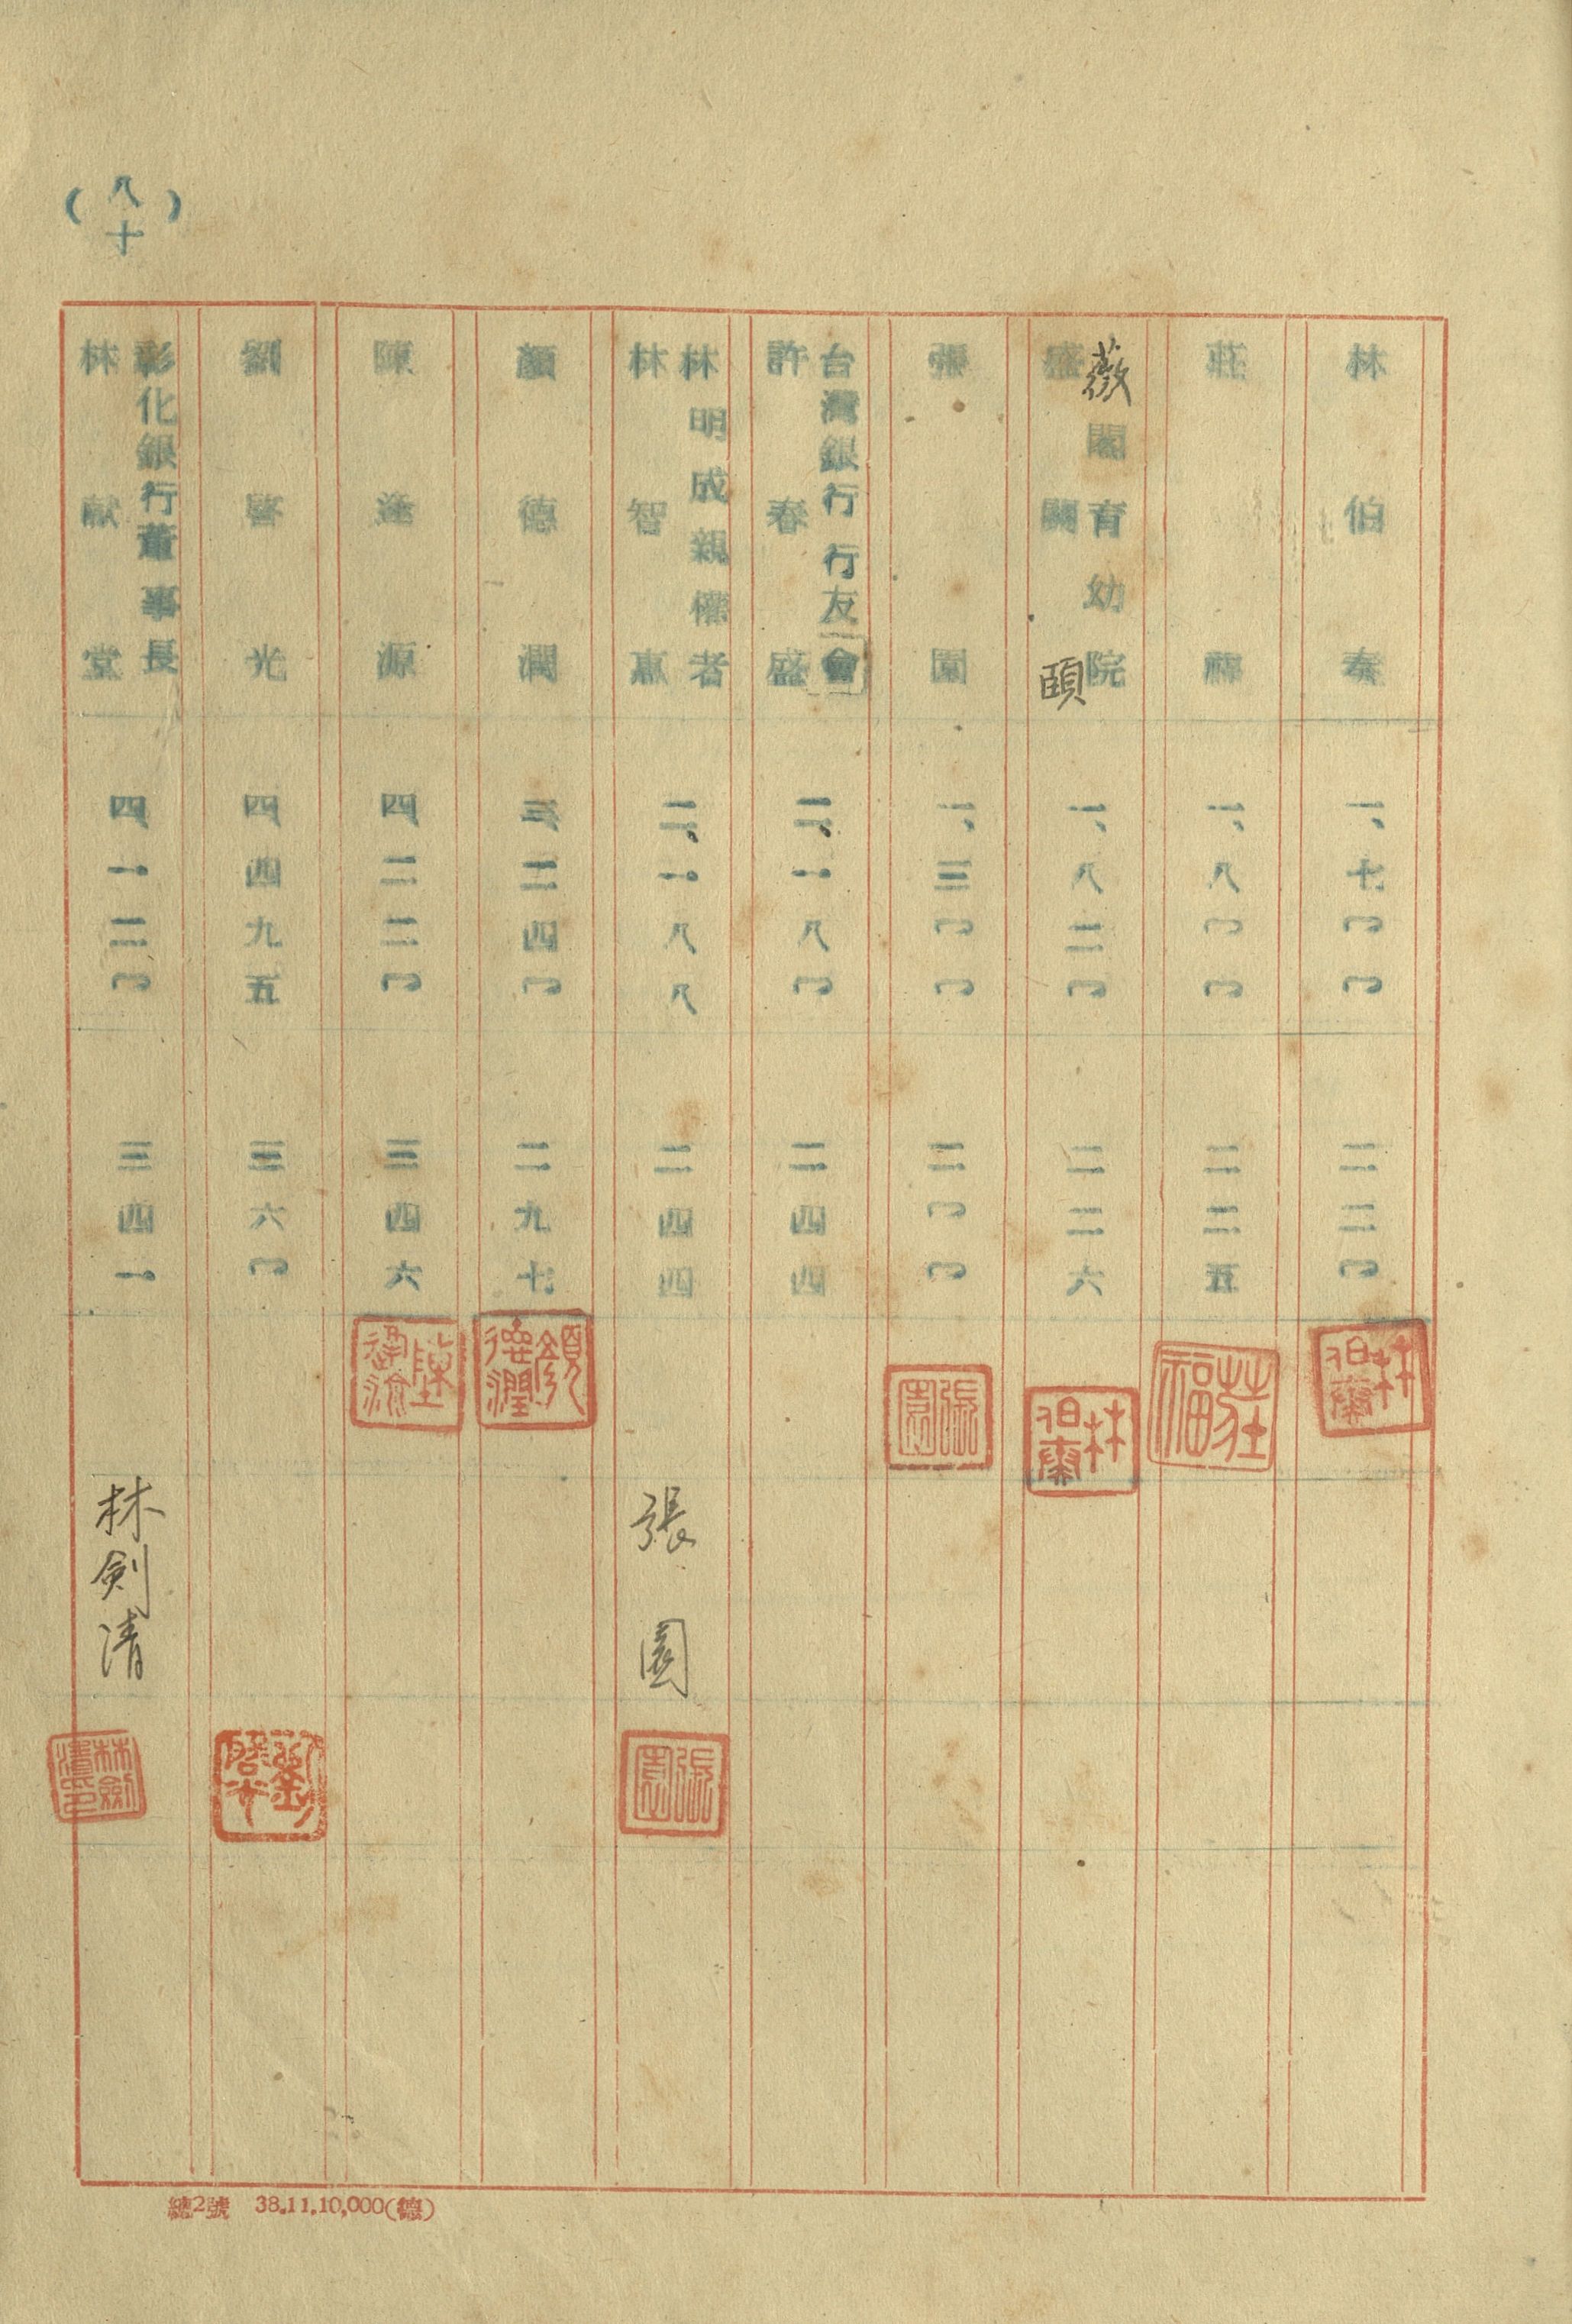 (八十)
林伯奏 一、七〇〇 二二〇
林伯奏
莊福 一、八〇〇 二二五
莊福
薇閣育幼院
盛關頤 一、八二〇 二二六
林伯奏
張園 一、三〇〇 二〇〇
張園
台灣銀行行友會
許春盛 二、一八〇 二四四
林明成親權者
林智惠 二、一八八 二四四
張園
張園
顏德潤 三、二四〇 二九七
顏德潤
陳逢源 四、二二〇 三四六
陳逢源
劉啓光 四、四九五 三六〇
劉啓光
彰化銀行董事長
林献堂 四、一二〇 三四一
林剣清
林劍清印
總2號 38.11.10,000(德)